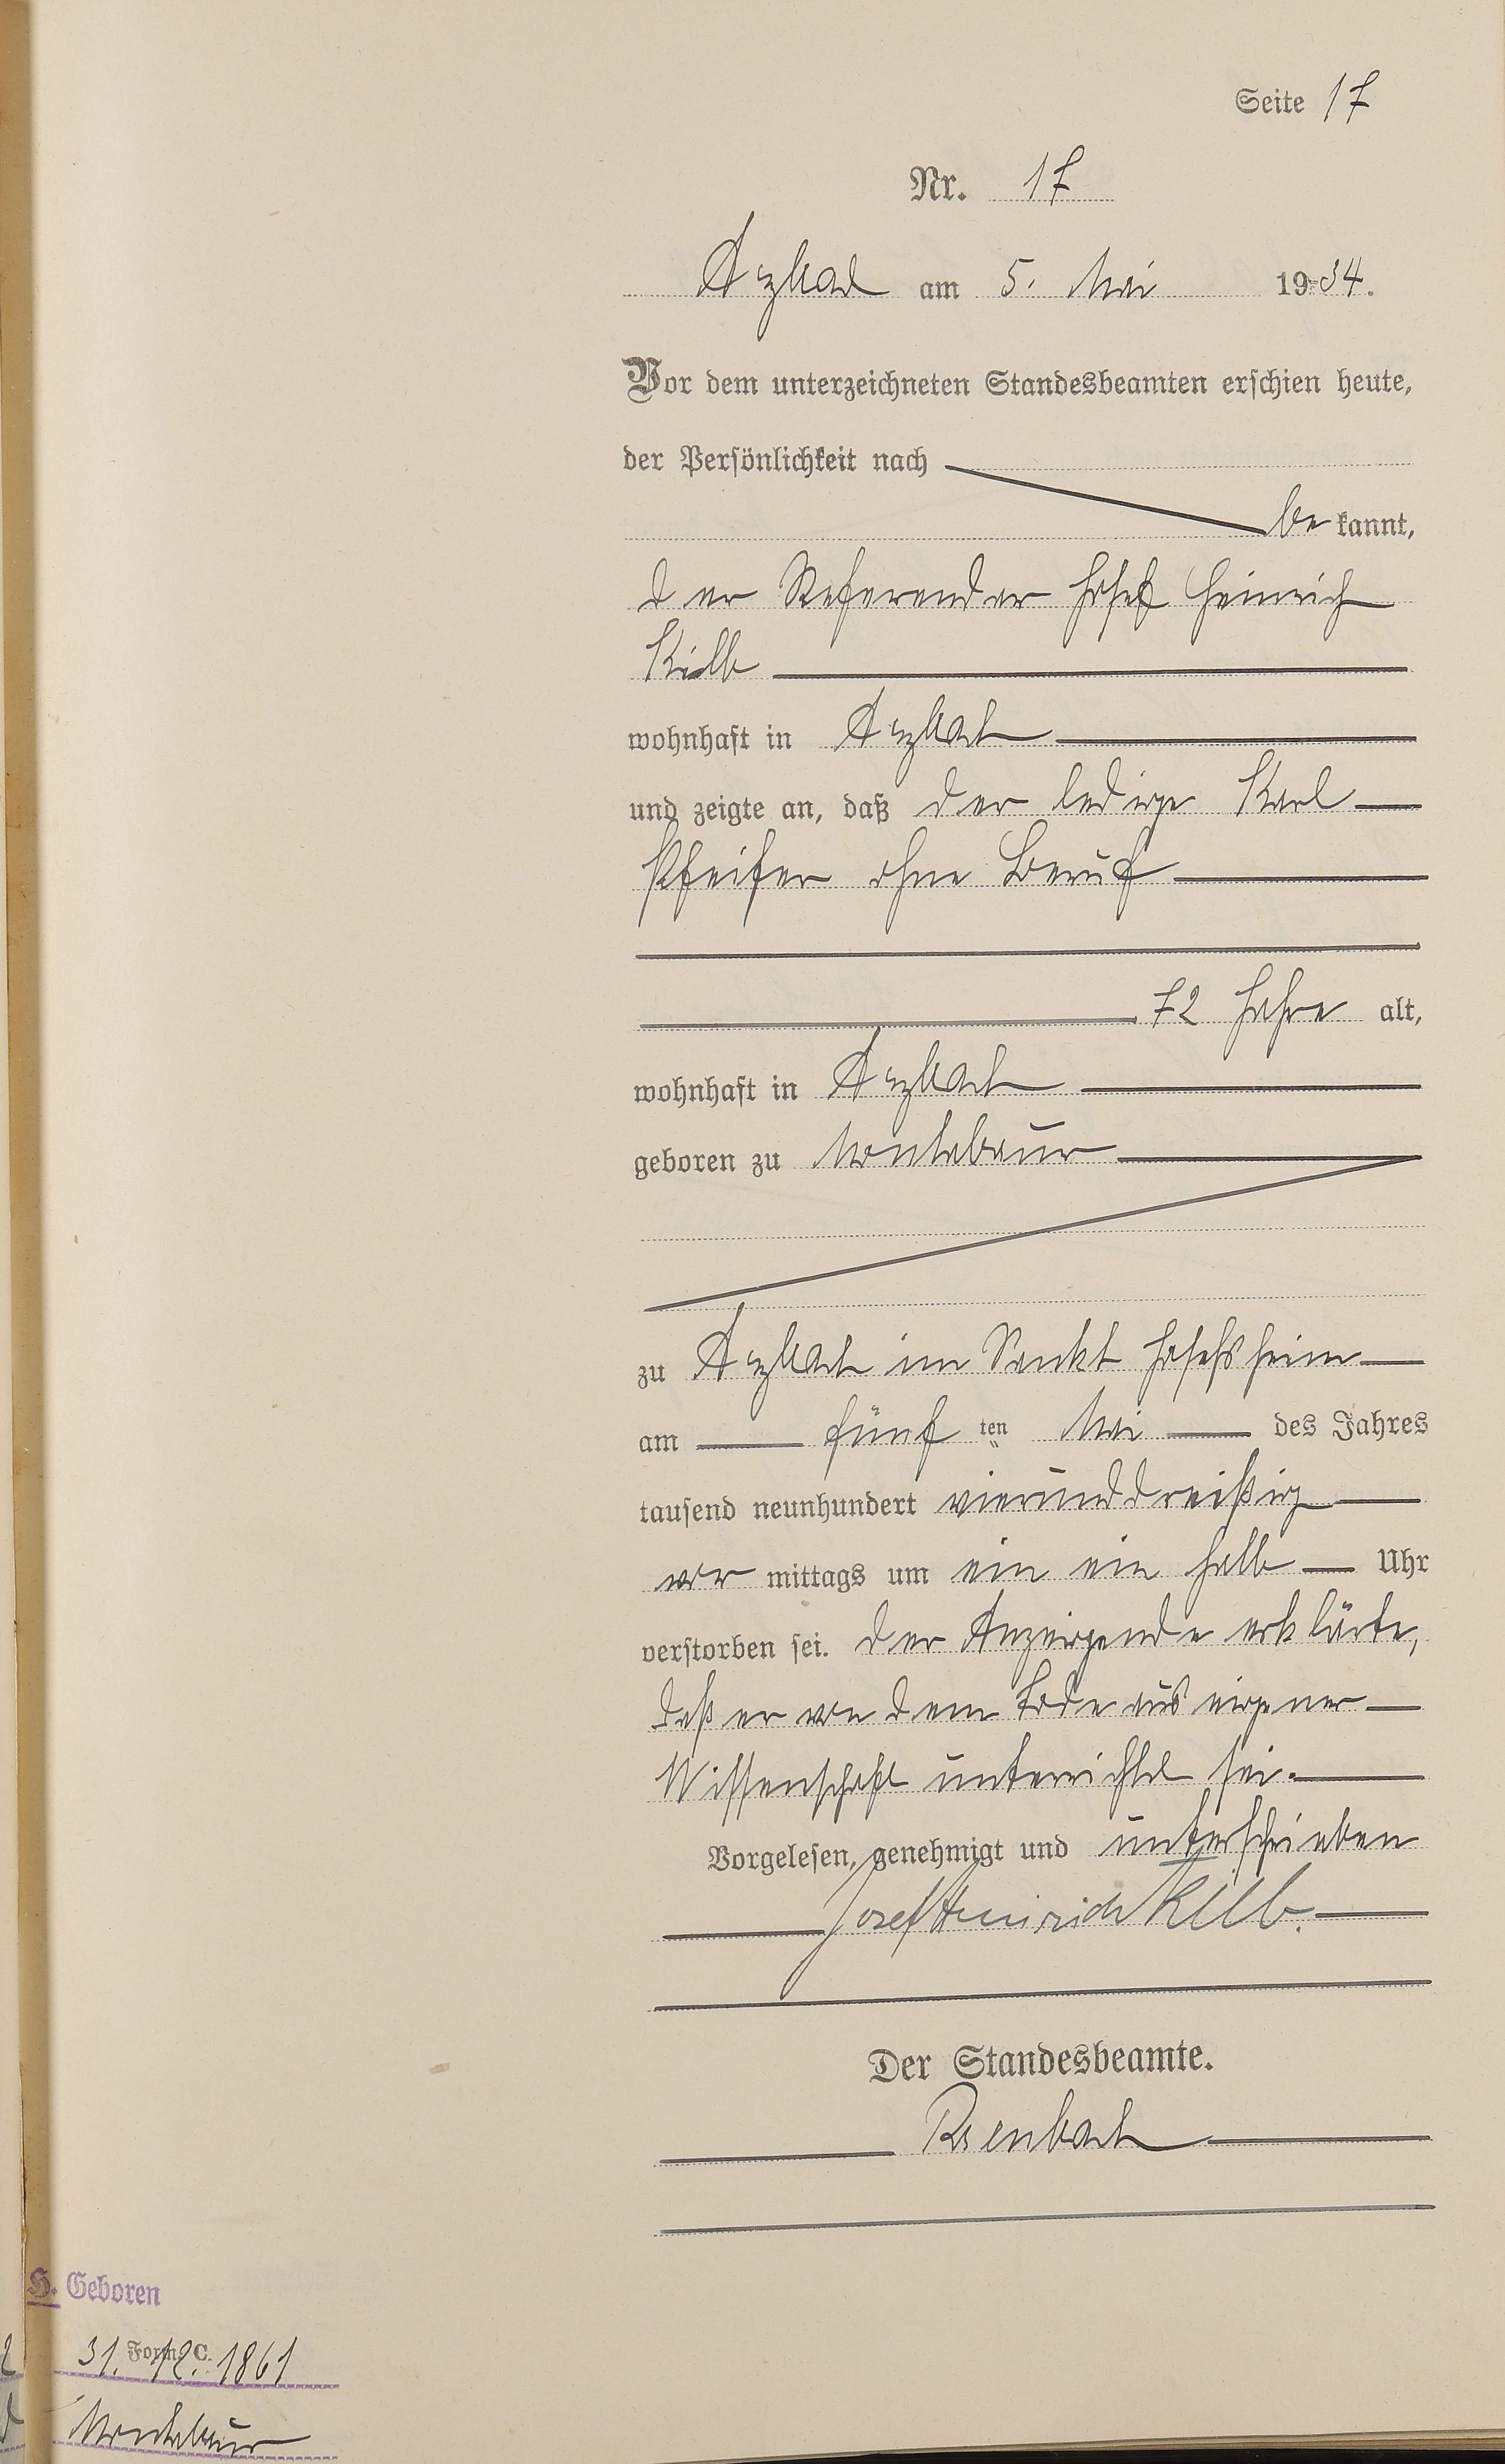 Seite 17
Nr. 17
Arzbach am 5. Mai 1934.
Vor dem unterzeichneten Standesbeamten erschien heute,
der Persönlichkeit nach
be kannt,
der Referendar Josef Heinrich
Külb
wohnhaft in Arzbach
und zeigte an, daß der ledige Karl
Pfeifer ohne Beruf
72 Jahre alt,
wohnhaft in Arzbach
geboren zu Montabaur
zu Arzbach im Sankt Josefsheim
am fünf ten Mai des Jahres
tausend neunhundert vierunddreißig
vor mittags um ein ein halb Uhr
verstorben sei. Der Anzeigende erklärte,
daß er von dem Tode aus eigener
Wissenschaft unterrichtet sei.
Vorgelesen, genehmigt und unterschrieben
Josef Heinrich
Der Standesbeamte.
H. Geboren
Form. C.
31. 12. 1861
Montabaur